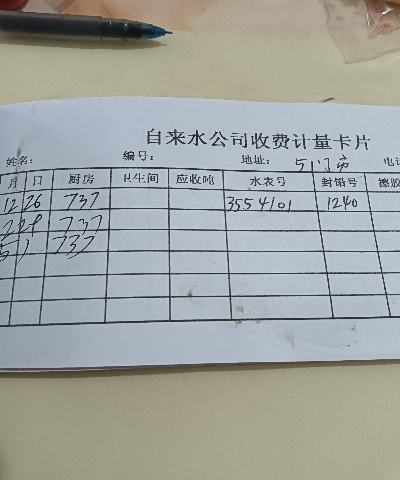 自来水公司收费计量卡片
姓名: 编号: 地址: 51门市 电话
月 日 厨房 卫生间 应收吨 水表号 封铅号 擦胶
12 26 737 3554101 1240
2 28 737
5 1 737